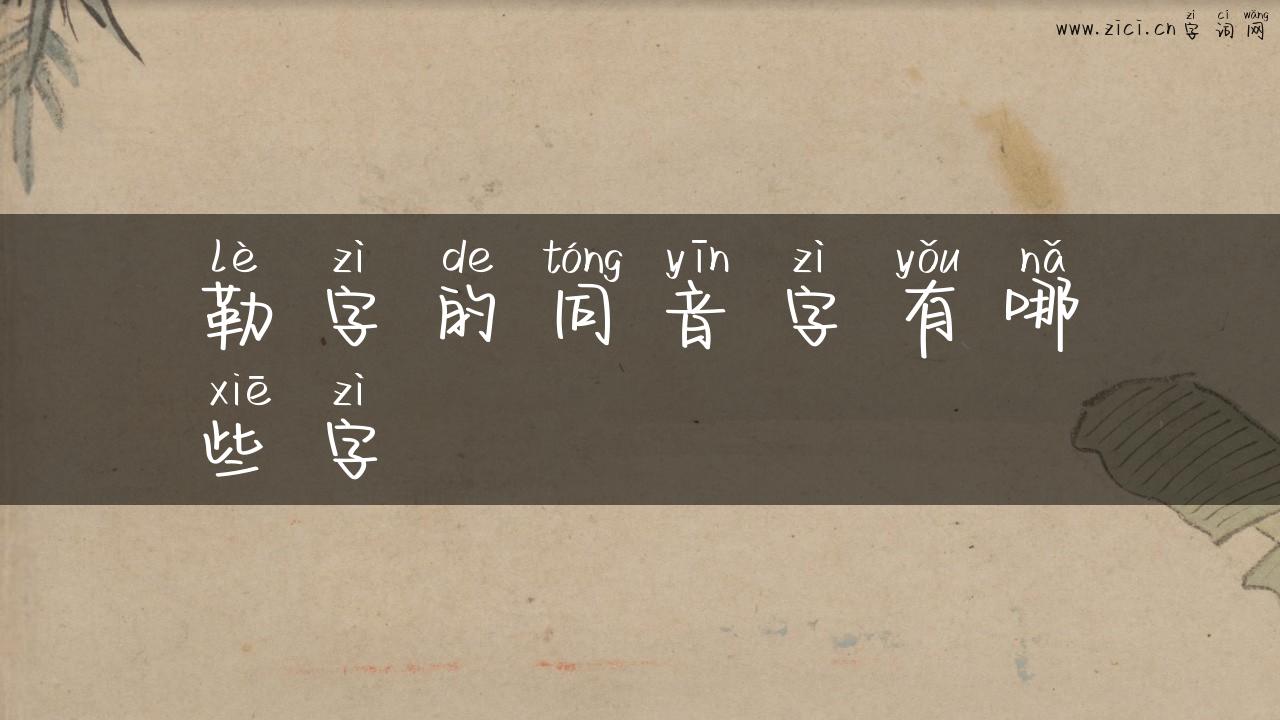 zì cí wǎng
www.zici.cn 字词网
lè zì de tóng yīn zì yǒu nǎ
勒字的同音字有哪
xiē zì
些字